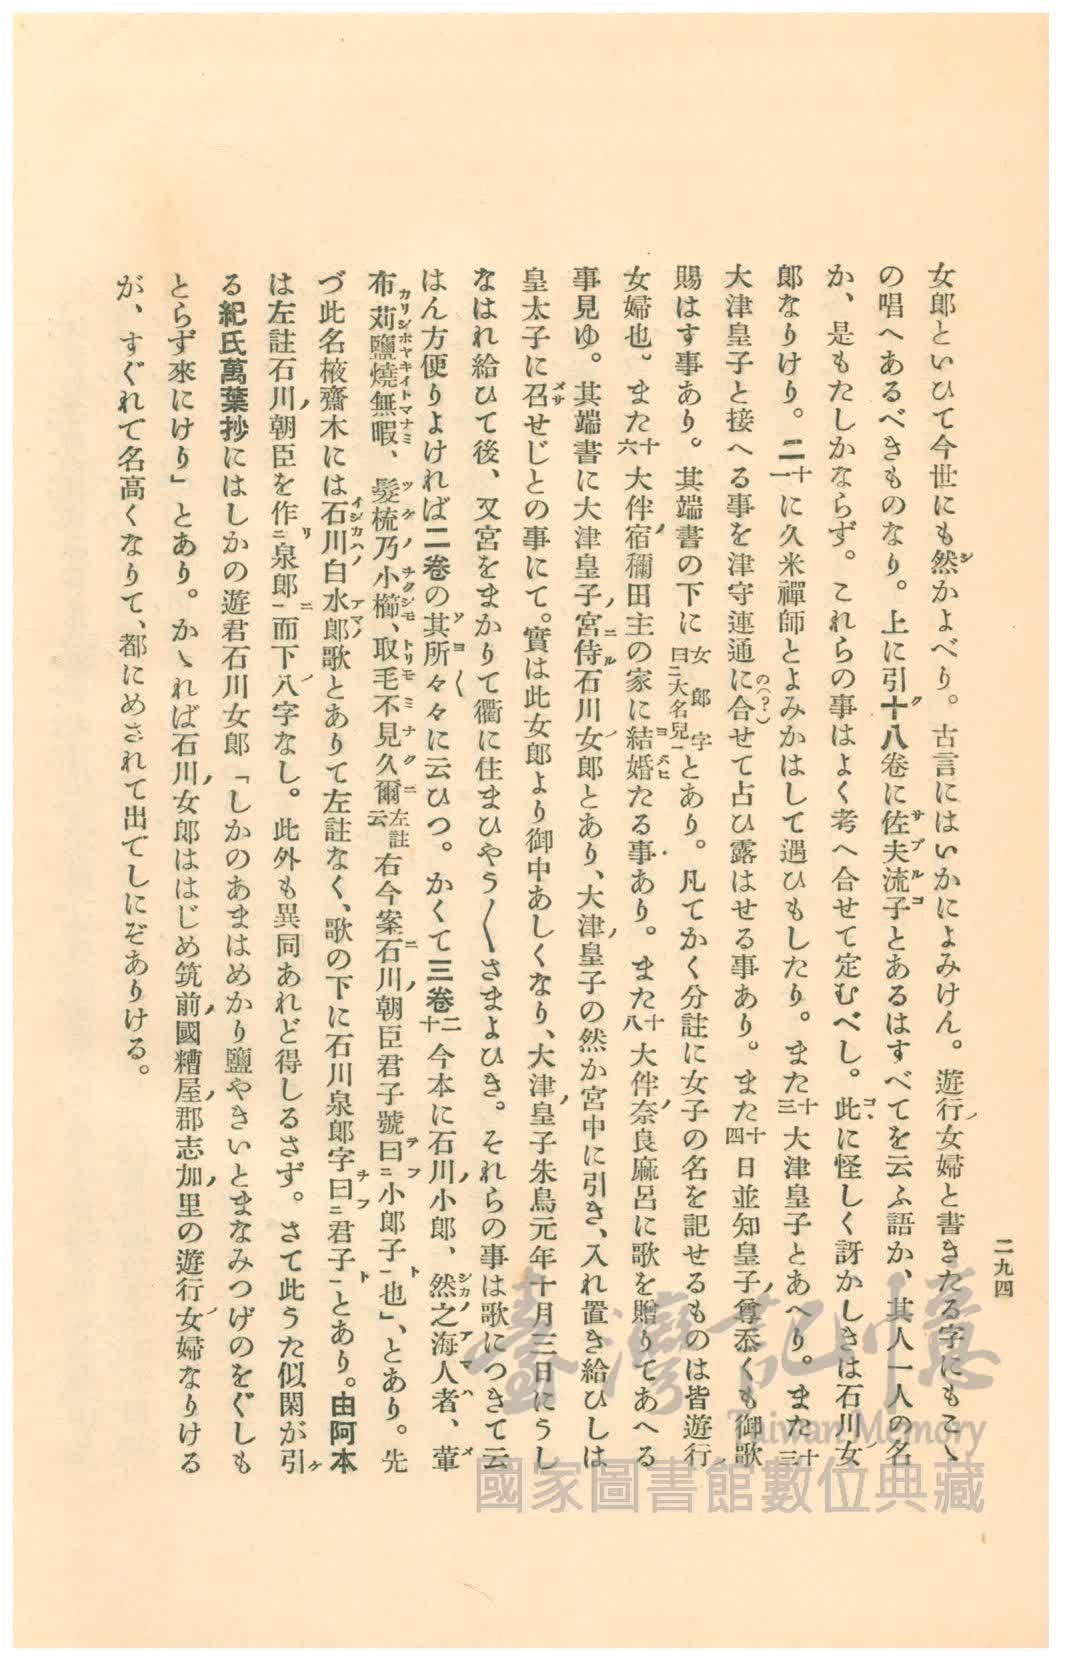 二九四
女郎といひて今世にも然かよべり。古言にはいかによみけん。遊行女婦と書きたる字にもこゝ
の唱へあるべきものなり。上に引十八卷に佐夫流子とあるはすべてを云ふ語か、其人一人の名
か、是もたしかならず。これらの事はよく考へ合せて定むべし。此に怪しく訝かしきは石川女
郎なりけり。二十一に久米禪師とよみかはして遇ひもしたり。また十三大津皇子とあへり。また十三
大津皇子と接へる事を津守連通に(の?)合せて占ひ露はせる事あり。また十四日並知皇子尊忝くも御歌
賜はす事あり。其端書の下に女郎字曰二大名兒一とあり。凡てかく分註に女子の名を記せるものは皆遊行
女婦也。また十六大伴宿禰田主の家に結婚たる事あり。また十八大伴奈良麻呂に歌を贈りてあへる
事見ゆ。其端書に大津皇子宮侍石川女郎とあり、大津皇子の然か宮中に引き、入れ置き給ひしは
皇太子に召せじとの事にて。實は此女郎より御中あしくなり、大津皇子朱鳥元年十月三日にうし
なはれ給ひて後、又宮をまかりて衢に住まひやう〳〵さまよひき。それらの事は歌につきて云
はん方便りよければ二卷の其所々々に云ひつ。かくて三卷二十今本に石川小郎、然之海人者、葷
布苅鹽燒無暇、髮梳乃小櫛、取毛不見久爾左註云右今案石川朝臣君子號曰二小郎子一也」、とあり。先
づ此名棭齋木には石川白水郎歌とありて左註なく、歌の下に石川泉郎字曰二君子一とあり。由阿本
は左註石川朝臣を作二泉郎一而下八字なし。此外も異同あれど得しるさず。さて此うた似閑が引
る紀氏萬葉抄にはしかの遊君石川女郎「しかのあまはめかり鹽やきいとまなみつげのをぐしも
とらず來にけり」とあり。かゝれば石川女郎ははじめ筑前國糟屋郡志加里の遊行女婦なりける
が、すぐれて名高くなりて、都にめされて出てしにぞありける。
臺灣記憶
Taiwan Memory
國家圖書館數位典藏